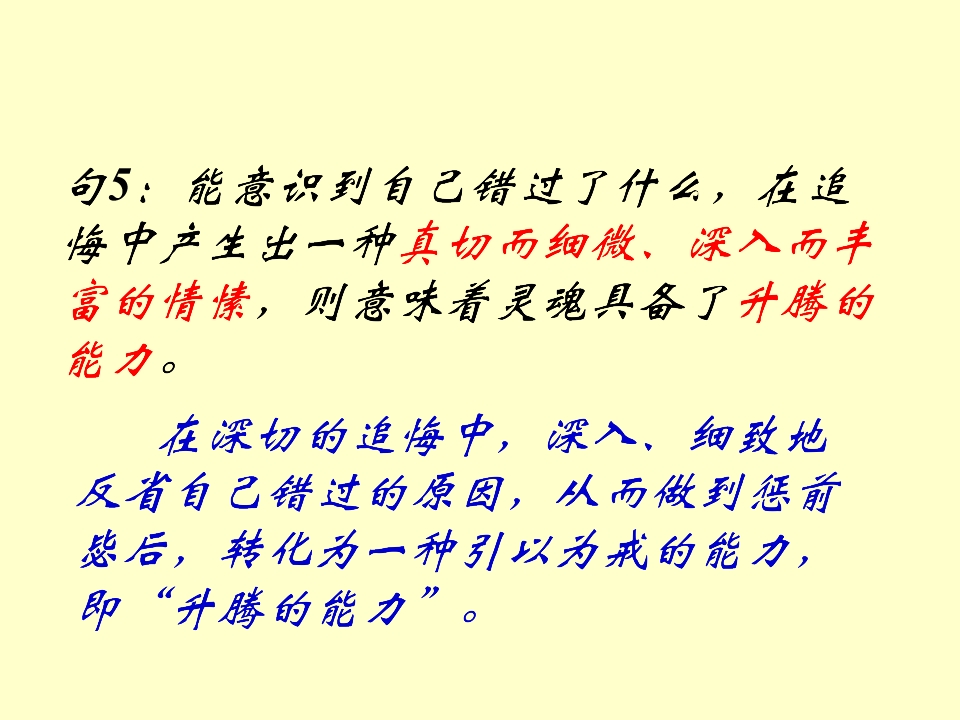 句5：能意识到自己错过了什么，在追
悔中产生出一种真切而细微、深入而丰
富的情愫，则意味着灵魂具备了升腾的
能力。
在深切的追悔中，深入、细致地
反省自己错过的原因，从而做到惩前
毖后，转化为一种引以为戒的能力，
即“升腾的能力”。